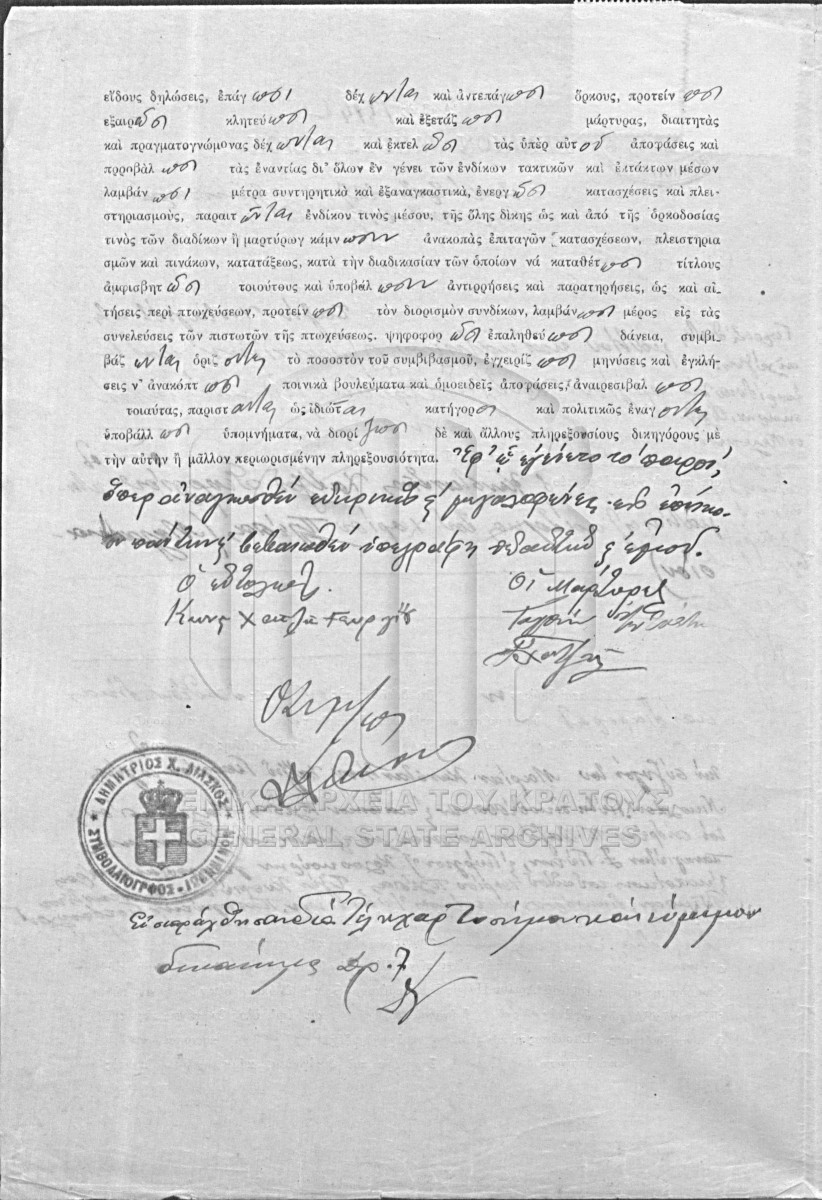 εἴδους δηλώσεις, ἐπάγωσι δέχωνται καὶ ἀντεπάγωσι ὅρκους, προτείνωσι
ἐξαιρῶσι κλητεύωσι καὶ ἐξετάζωσι μάρτυρας, διαιτητὰς
καὶ πραγματογνώμονας δέχωνται καὶ ἐκτελῶσι τὰς ὑπὲρ αὐτοῦ ἀποφάσεις καὶ
πρροβάλωσι τὰς ἐναντίας δι' ὅλων ἐν γένει τῶν ἐνδίκων τακτικῶν καὶ ἐκτάκτων μέσων
λαμβάνωσι μέτρα συντηρητικὰ καὶ ἐξαναγκαστικά, ἐνεργῶσι κατασχέσεις καὶ πλει-
στηριασμούς, παραιτῶνται ἐνδίκου τινὸς μέσου, τῆς ὅλης δίκης ὡς καὶ ἀπὸ τῆς ὁρκοδοσίας
τινὸς τῶν διαδίκων ἢ μαρτύρωγ κάμνωσιν ἀνακοπὰς ἐπιταγῶν κατασχέσεων, πλειστηρια
σμῶν καὶ πινάκων, κατατάξεως, κατὰ τὴν διαδικασίαν τῶν ὁποίων νά καταθέτωσι τίτλους
ἀμφισβητῶσι τοιούτους καὶ ὑποβάλωσιν ἀντιρρήσεις καὶ παρατηρήσεις, ὡς καὶ αἰ-
τήσεις περὶ πτωχεύσεων, προτείνωσι τὸν διορισμὸν συνδίκων, λαμβάνωσι μέρος εἰς τὰς
συνελεύσεις τῶν πιστωτῶν τῆς πτωχεύσεως. ψηφοφορῶσι ἐπαληθεύωσι δάνεια, συμβι-
βάζωνται ὁρίζοντες τὸ ποσοστὸν τοῦ συμβιβασμοῦ, ἐγχειρίζωσι μηνύσεις καὶ ἐγκλή-
σεις ν' ἀνακόπτωσι ποινικὰ βουλεύματα καὶ ὁμοειδεῖς ἀποφάσεις, ἀναιρεσιβαλωσι
τοιαύτας, παριστανται ὡς ἰδιῶται κατήγοροι καὶ πολιτικῶς ἐναγοντες
ὑποβάλλωσι ὑπομνήματα, νὰ διορίζωσι δὲ καὶ ἄλλους πληρεξουσίους δικηγόρους μὲ
τὴν αὐτὴν ἢ μᾶλλον περιωρισμένην πληρεξουσιότητα. Ἐφ' ᾧ ἐγένετο τὸ παρόν,
ὅπερ ἀναγνωσθὲν εὐκρινῶς καὶ μεγαλοφώνως εἰς ἐπήκο-
ον πάντων καὶ βεβαιωθὲν ὑπεγράφη παρ' αὐτῶν καὶ ἐμοῦ.
Ὁ ἐντολεύς
Οἱ Μάρτυρες
Κωνς Χατζῆ Γεωργίου
Ὁ Συμ/φος
ΔΗΜΗΤΡΙΟΣ Χ. ΔΙΑΣΚΟΣ
ΣΥΜΒΟΛΑΙΟΓΡΦΟΣ ΙΩΑΝΝΙΝΩΝ
ΕΝΙΚΑ ΑΡΧΕΙΑ ΤΟΥ ΚΡΑΤΟΥΣ
GENERAL STATE ARCHIVES
Εἰσεπράχθησαν διὰ Τέλη χαρτοσήμου καὶ νόμιμον
δικαίωμα Δρ. 7